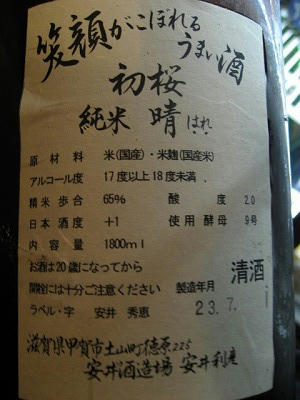 笑顔がこぼれる
うまい酒
初桜
純米 晴 はれ
原材料 米(国産)・米麹(国産米)
アルコール度 17度以上18度未満
精米歩合 65% 酸度 2.0
日本酒度 +1 使用酵母 9号
内容量 1800ml
お酒は20歳になってから 清酒
開栓には十分ご注意ください 製造年月
ラベル・字 安井 秀恵 23.7.
滋賀県甲賀市土山町徳原225
安井酒造場 安井利彦